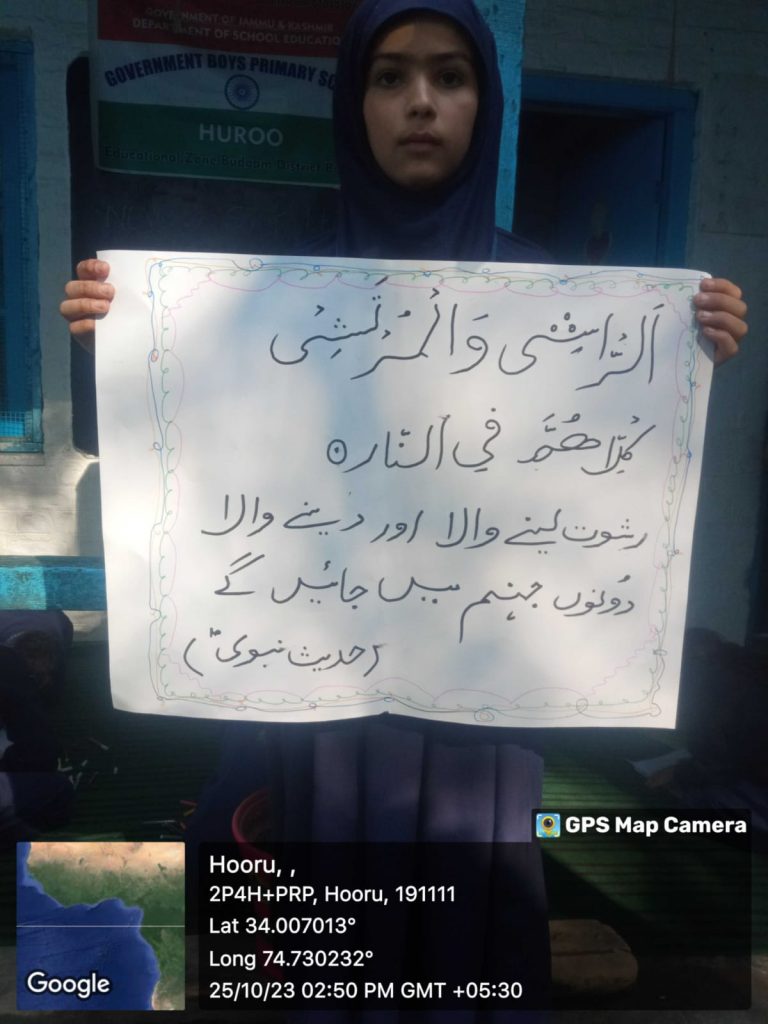 GOVERNMENT OF JAMMU & KASHMIR
DEPARTMENT OF SCHOOL EDUCATION
GOVERNMENT BOYS PRIMARY SC
HUROO
Educational Zone Budgam District B
اَلرَّاشِیْ وَالْمُرْتَشِیْ
کِلَاھُمَا فِی النَّار
رشوت لینے والا اور دینے والا
دُونوں جہنم میں جائیں گے
(حدیث نبوی ؐ)
GPS Map Camera
Hooru, ,
2P4H+PRP, Hooru, 191111
Lat 34.007013°
Long 74.730232°
25/10/23 02:50 PM GMT +05:30
Google